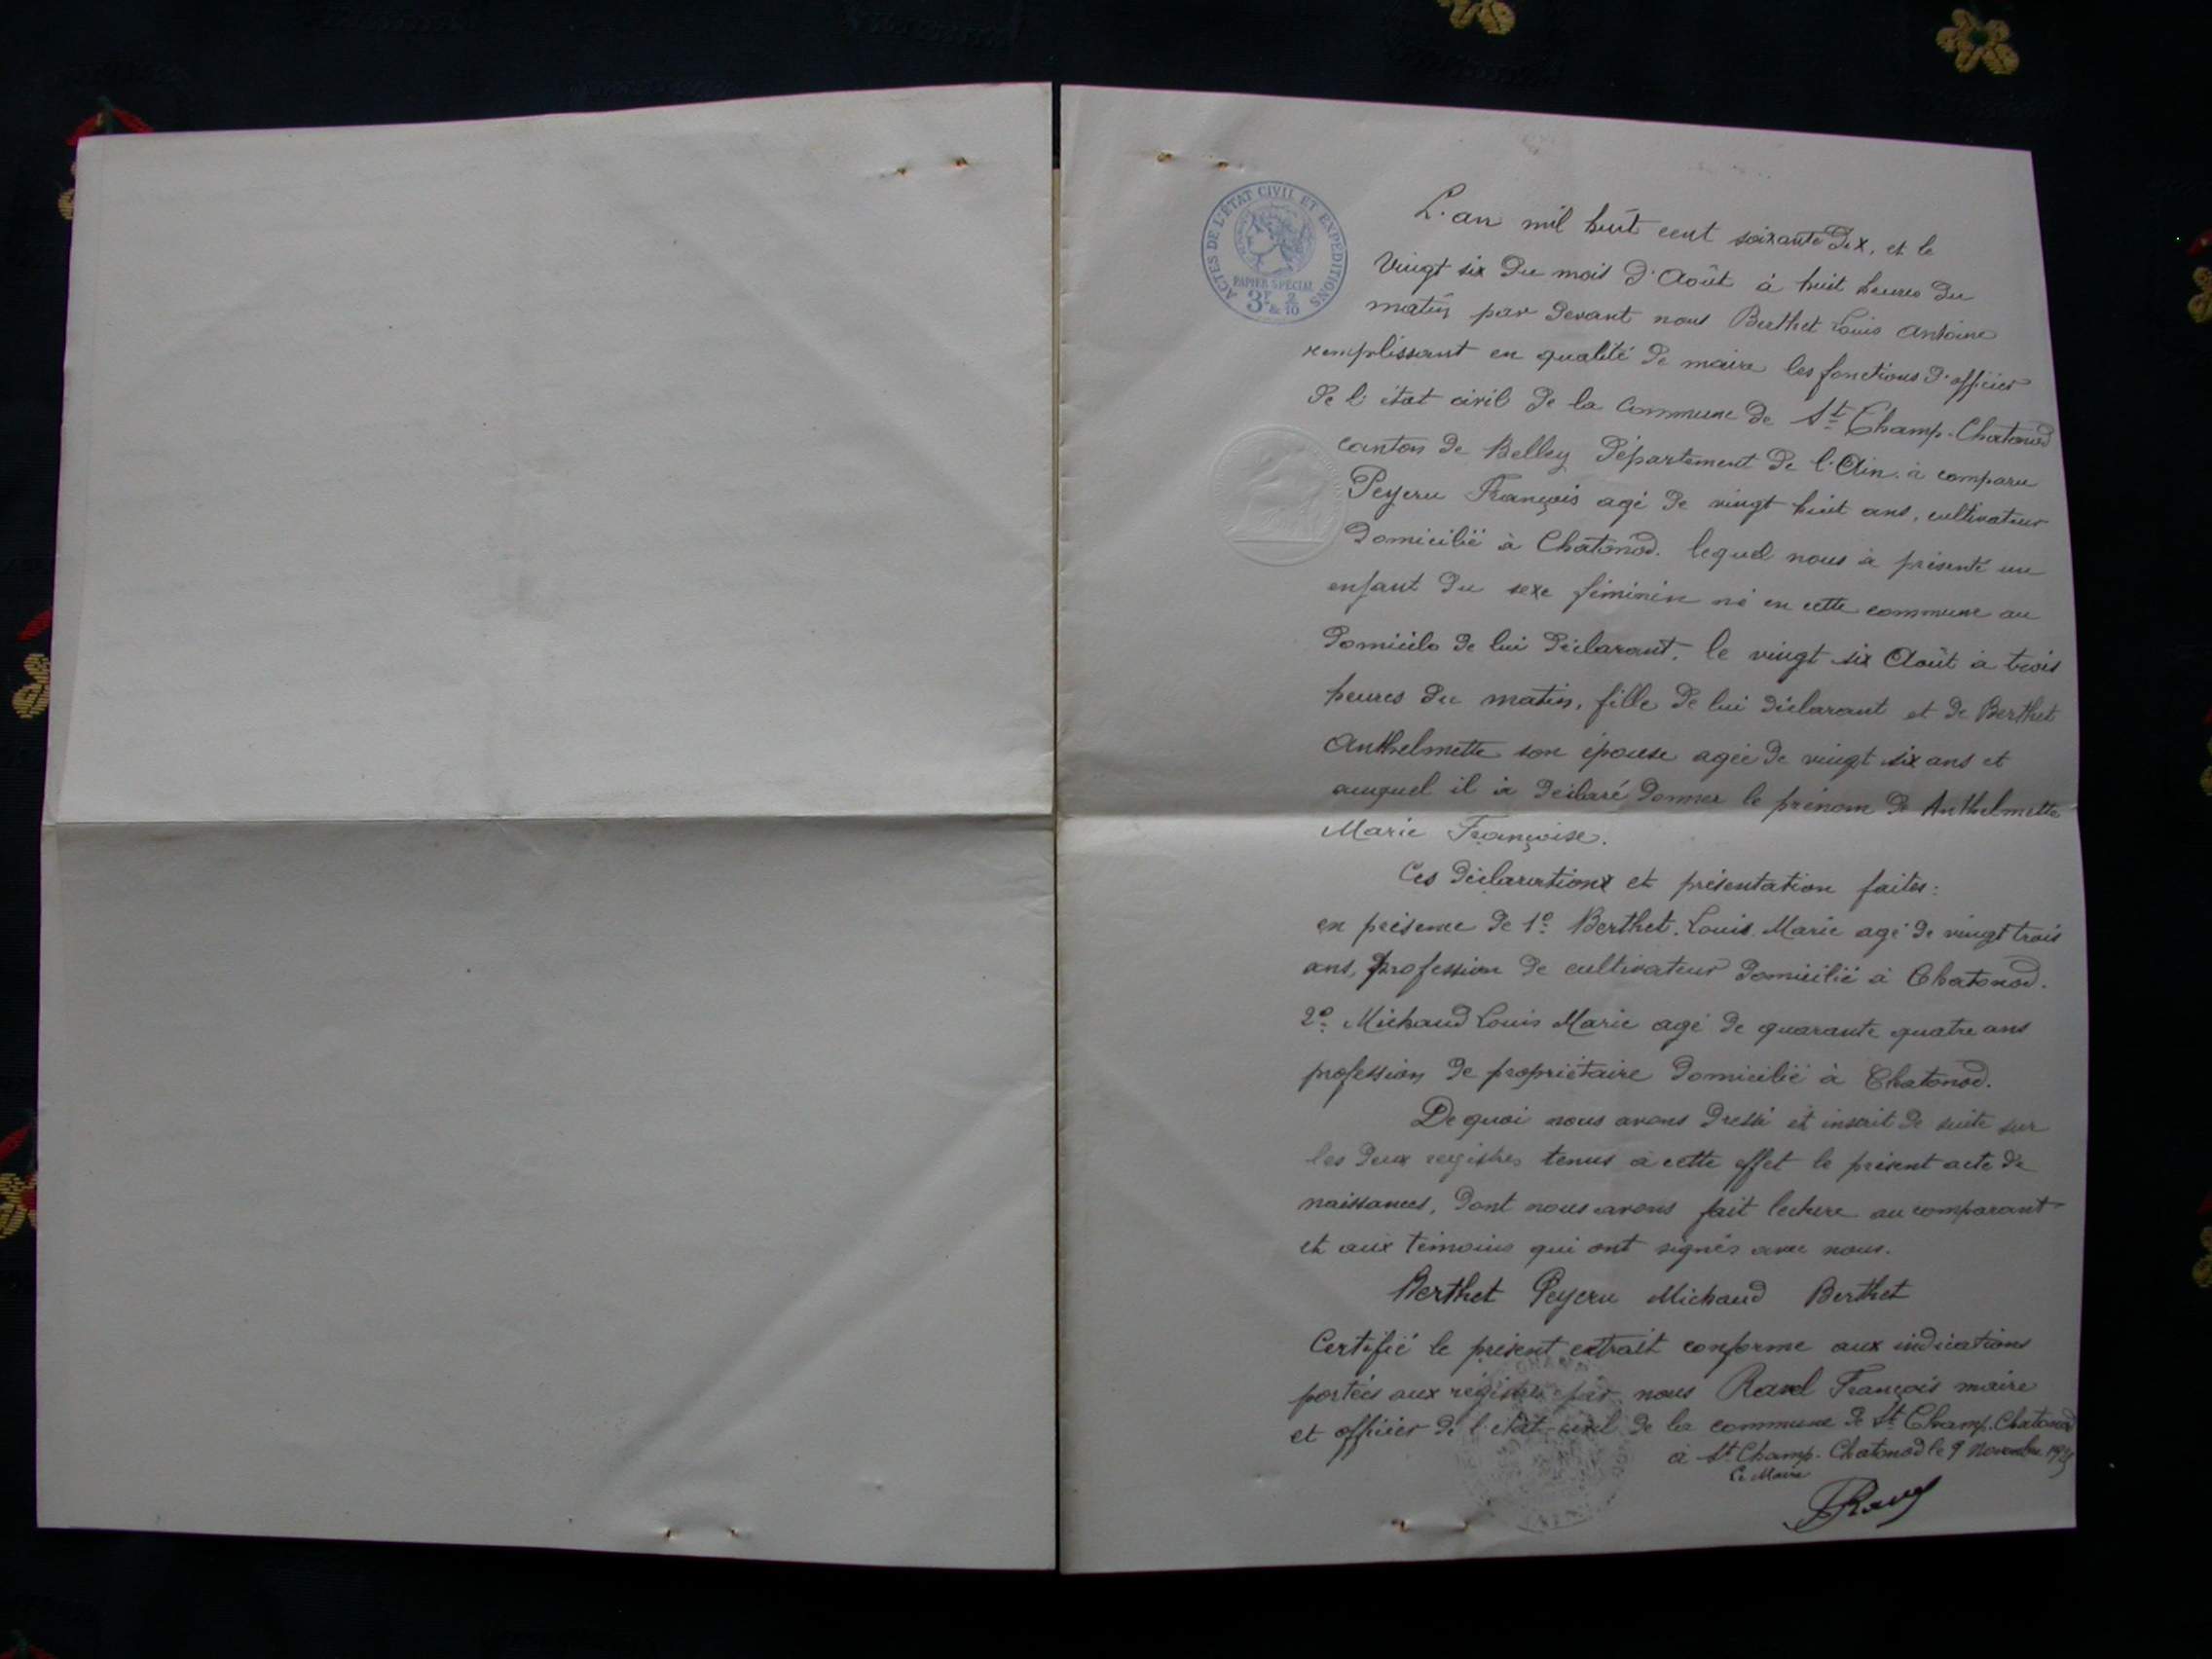 ACTES DE L'ÉTAT CIVIL ET EXPÉDITIONS
PAPIER SPÉCIAL
3F & 2/10
L'an mil huit cent soixante dix, et le
Vingt six du mois d'Août à huit heures du
matin par devant nous Berthet Louis Antoine
remplissant en qualité de maire les fonctions d'officier
de l'état civil de la Commune de St Champ-Chatonod
canton de Belley Département de l'Ain. à comparu
Peyeru François agé de vingt huit ans, cultivateur
domicilié à Chatonod. lequel nous à présenté un
enfant du sexe féminin né en cette commune au
domicile de lui déclarant, le vingt six Août à trois
heures du matin, fille de lui déclarant et de Berthet
Anthelmette son épouse agée de vingt six ans et
auquel il à déclaré donner le prénom de Anthelmette
Marie Françoise.
Ces déclarations et présentation faites:
en présence de 1º Berthet. Louis Marie agé de vingt trois
ans, profession de cultivateur domicilié à Chatonod.
2º Michaud Louis Marie agé de quarante quatre ans
profession de propriétaire domicilié à Chatonod.
De quoi nous avons dressé et inscrit de suite sur
les deux registres tenus à cette effet le présent acte de
naissances, dont nous avons fait lecture au comparant
et aux témoins qui ont signés avec nous.
Berthet Peyeru Michaud Berthet
Certifié le présent extrait conforme aux indications
portées aux registres par nous Ravel François maire
et officier de l'état civil de la commune de St Champ-Chatonod
à St Champ-Chatonod le 9 Novembre
Le Maire
FRavel